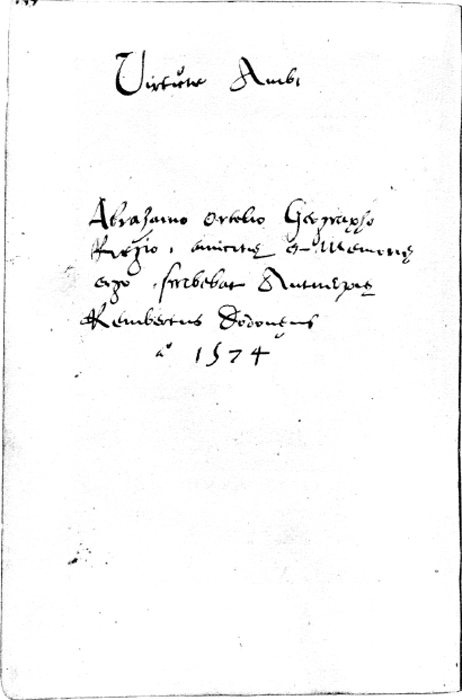 Virtute Ambi
Abrahamo Ortelio Geographo
Regio, amicitię et Memorię
ergo scribebat Antuerpię
Rembertus Dodonęus
aº 1574